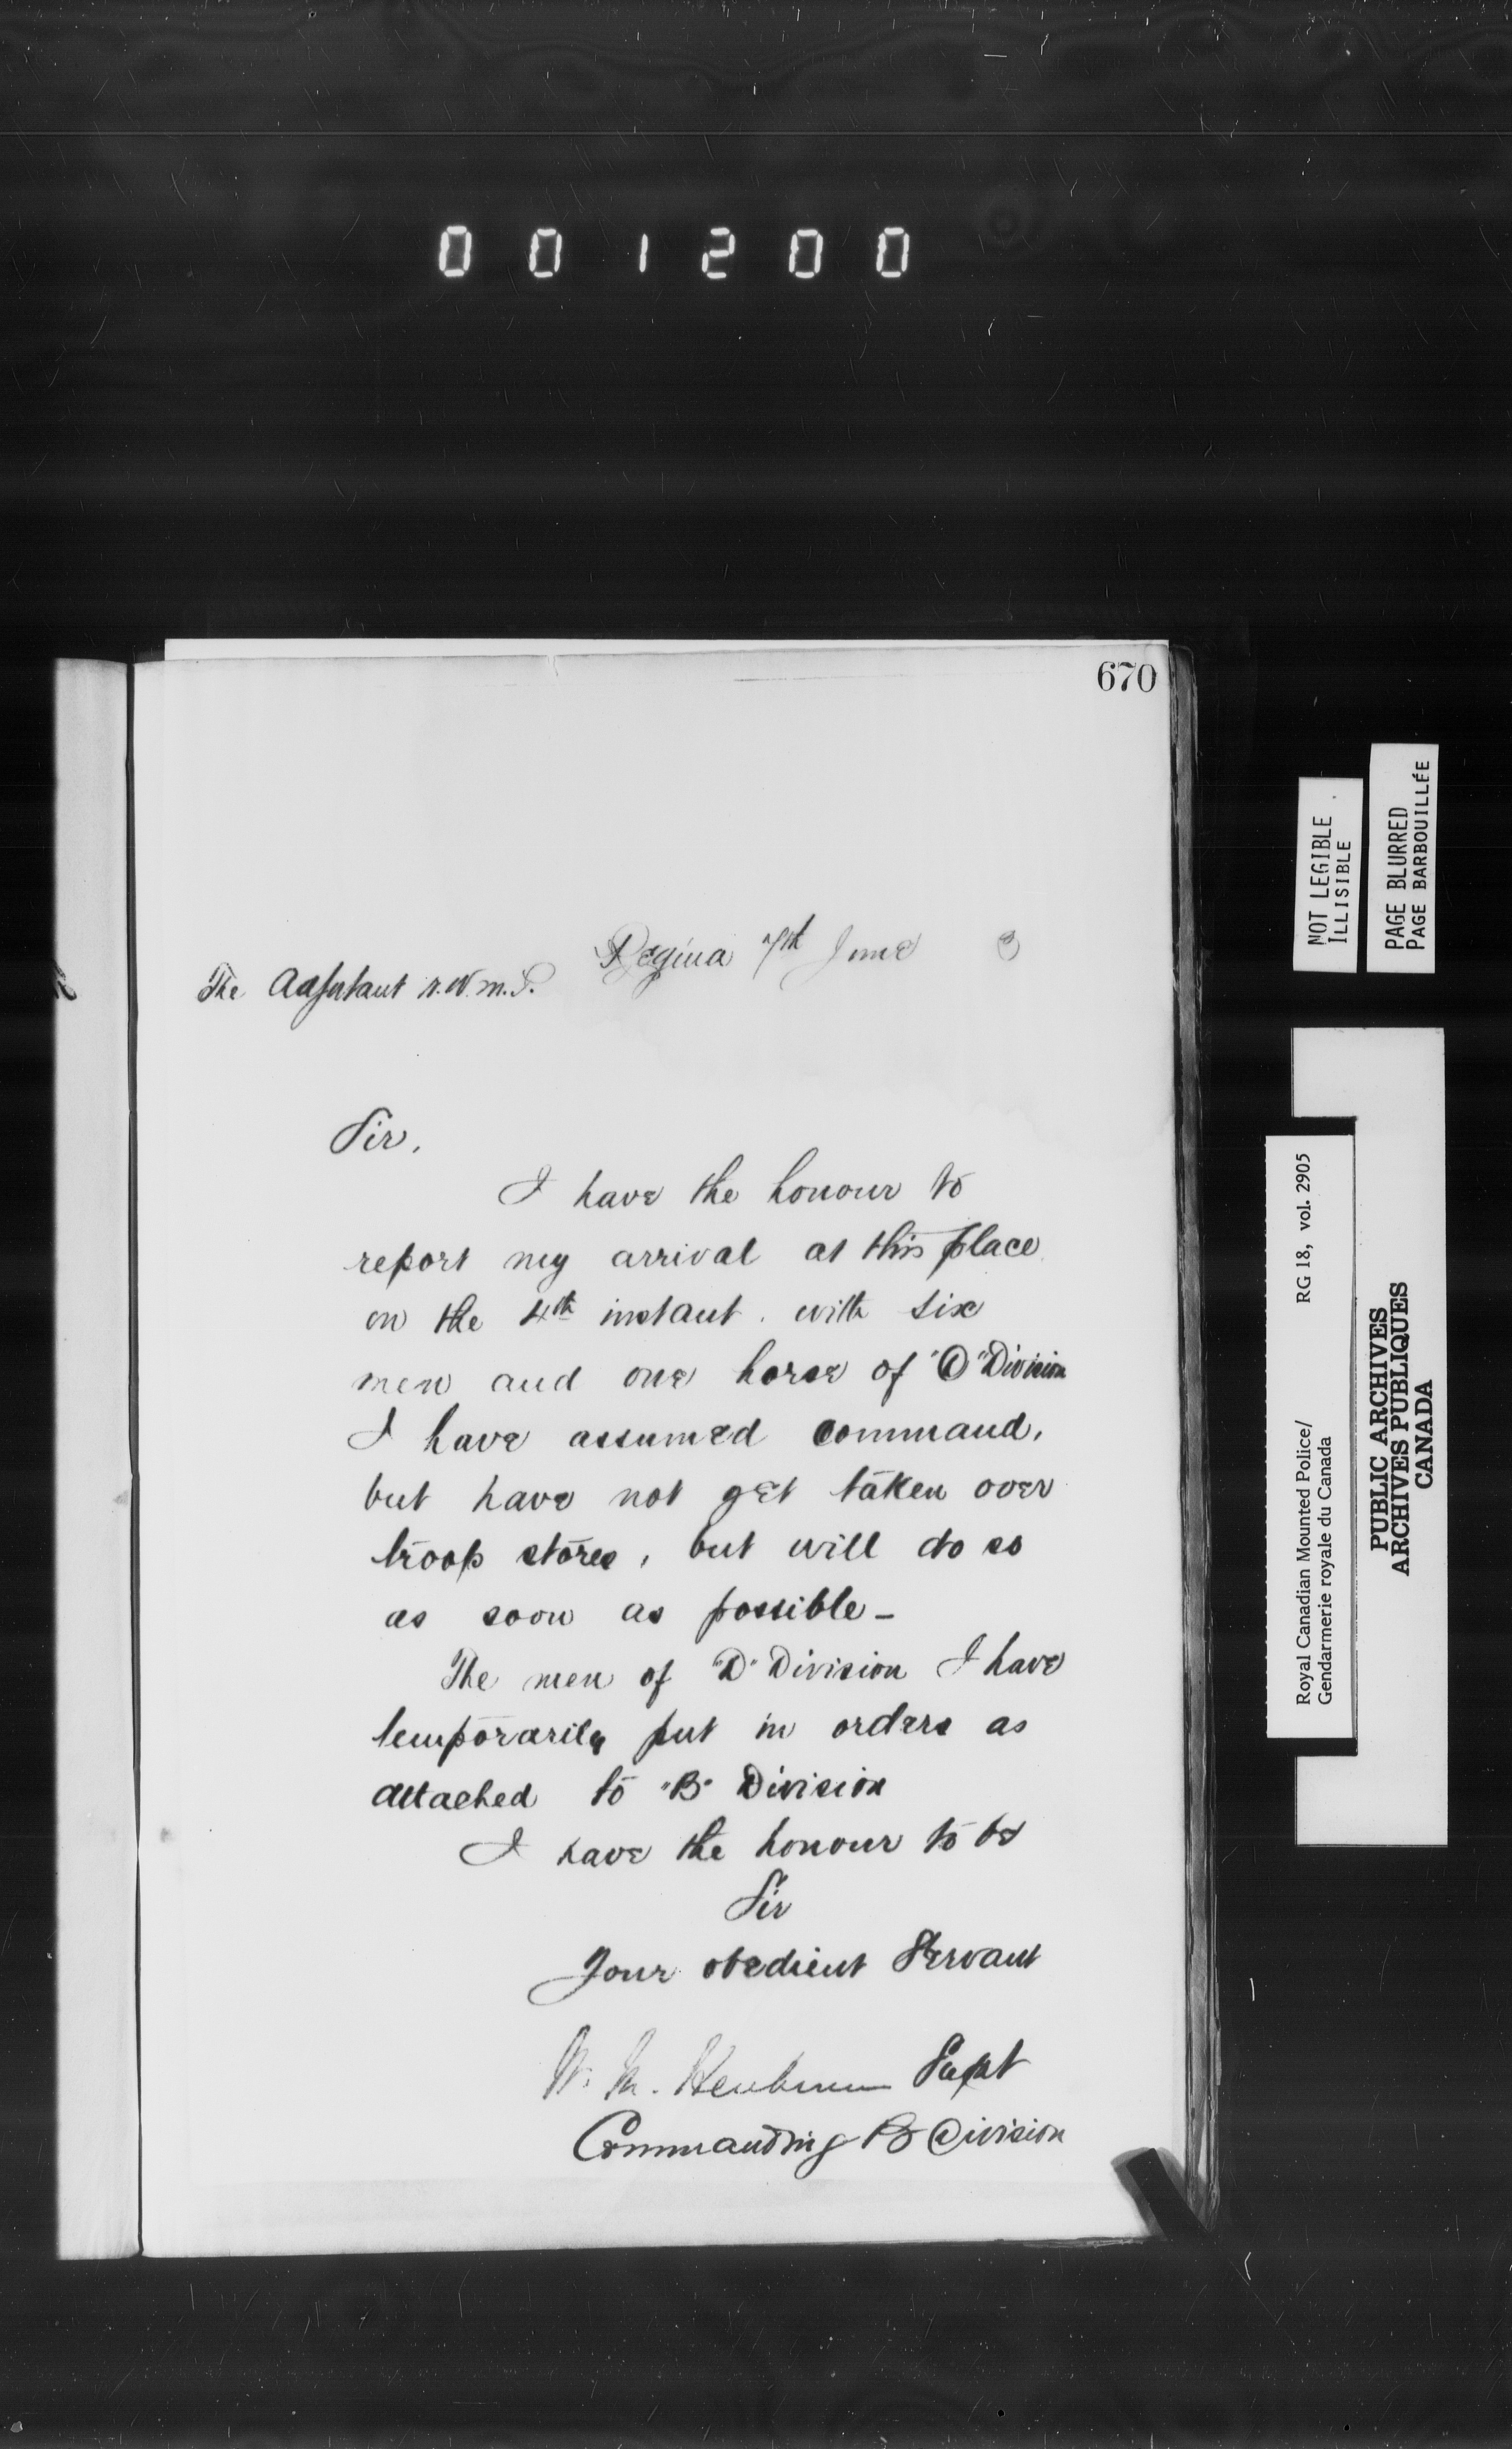 001200
670
Regina 7th June 3
The Adjutant N.W.M.P.
Sir,
I have the honour to
report my arrival at this place
on the 4th instant. with six
men and one horse of "D" Division
I have assumed command,
but have not yet taken over
troop stores, but will do so
as soon as possible -
The men of "D" Division I have
temporarily put in orders as
attached to "B" Division
I have the honour to be
Sir
Your obedient Servant
W. M. Herchmer Supt
Commanding B Division
NOT LEGIBLE
ILLISIBLE
PAGE BLURRED
PAGE BARBOUILLÉE
Royal Canadian Mounted Police/ RG 18, vol. 2905
Gendarmerie royale du Canada
PUBLIC ARCHIVES
ARCHIVES PUBLIQUES
CANADA